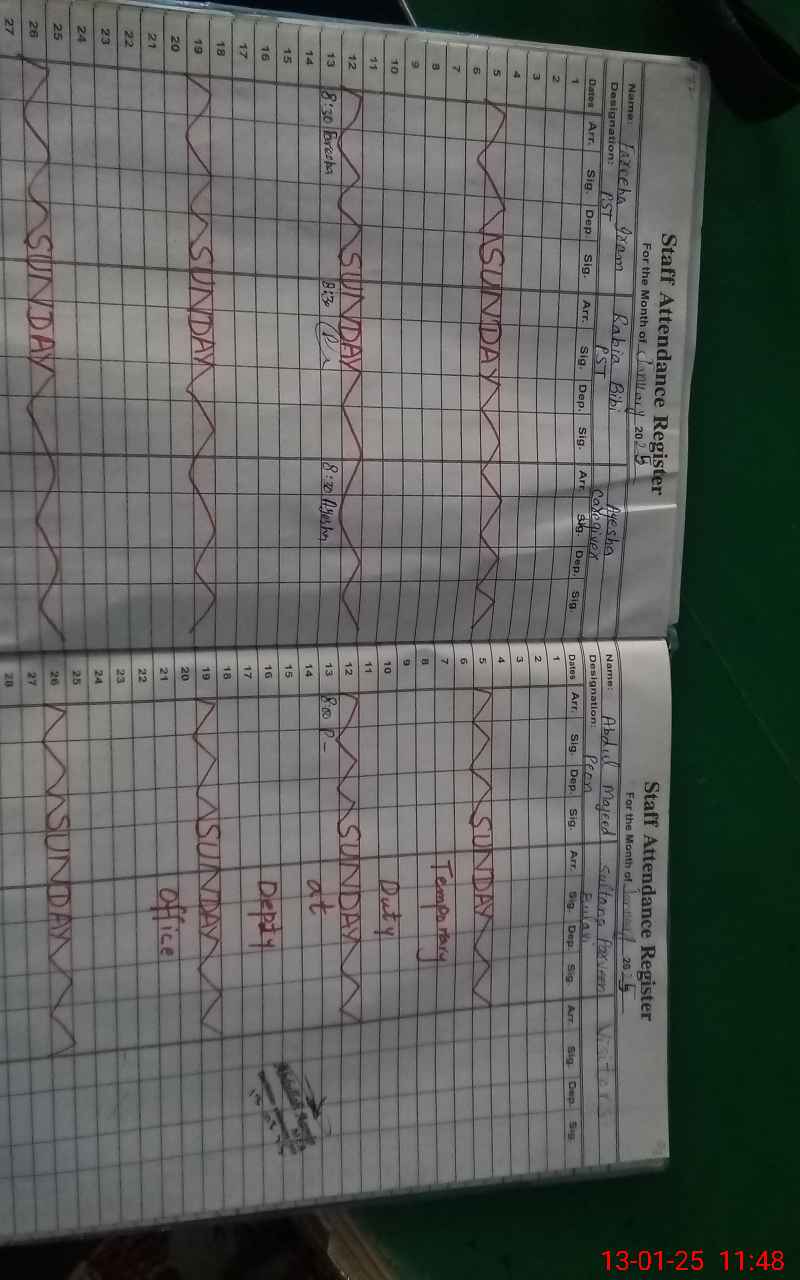 Staff Attendance Register
For the Month of January 2025
Name: Fareeha Ikram Rabia Bibi Ayesha
Designation: PST PST Caregiver
Dates Arr. Sig. Dep. Sig. Arr. Sig. Dep. Sig. Arr. Sig. Dep. Sig.
1
2
3
4
5 SUNDAY
6
7
8
9
10
11
12 SUNDAY
13 8:30 Fareeha 8:30 8:30 Ayesha
14
15
16
17
18
19 SUNDAY
20
21
22
23
24
25
26 SUNDAY
27
Staff Attendance Register
For the Month of January 2025
Name: Abdul Majeed Sultana Parveen Visitors
Designation: Peon
Dates Arr. Sig. Dep. Sig. Arr. Sig. Dep. Sig. Arr. Sig. Dep. Sig.
1
2
3
4
5 SUNDAY
6
7 Temporary
8
9
10 Duty
11
12 SUNDAY
13 8:00
14 at
15
16 Depty
17
18
19 SUNDAY
20
21 Office
22
23
24
25
26 SUNDAY
27
28
13-01-25 11:48